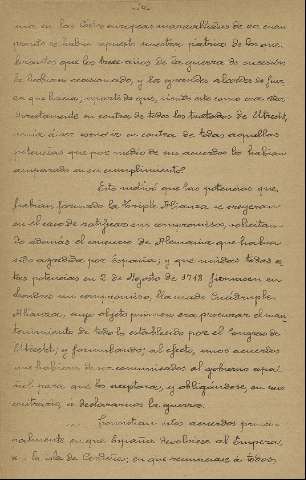 nia en las Cortes europeas maravilladas de ver cuan
pronto se había repuesto nuestra patria de los que-
brantos que los trece años de la guerra de sucesión
le habían ocasionado, y los grandes alardes de fuer
en que hacía, aparte de que, siendo este como era
directamente en contra de todos los tratados de Utrecht,
en contra de todas aquellas
potencias que por medio de sus acuerdos lo habían
amparado en su cumplimiento.
Esto motivó que las potencias que
habían formado la Triple Alianza se creyeran
en el caso de ratificar sus compromisos, solicitan-
do además el concurso de Alemania que había
sido agredida por España; y que unidas todas es-
tas potencias en 2 de Agosto de 1718 firmasen en
Londres un compromiso, llamado Cuádruple-
Alianza, cuyo objeto primero era procurar el man-
tenimiento de todo lo establecido por el Congreso de
Utrecht; y formulando, al efecto, unos acuerdos
que habían de ser comunicados al gobierno espa-
ñol para que los aceptara, y obligándose, en caso
contrario, a declararnos la guerra.
Consistían estos acuerdos princi-
palmente en que España devolviese al Empera-
la isla de Cerdeña; en que renunciase a todos